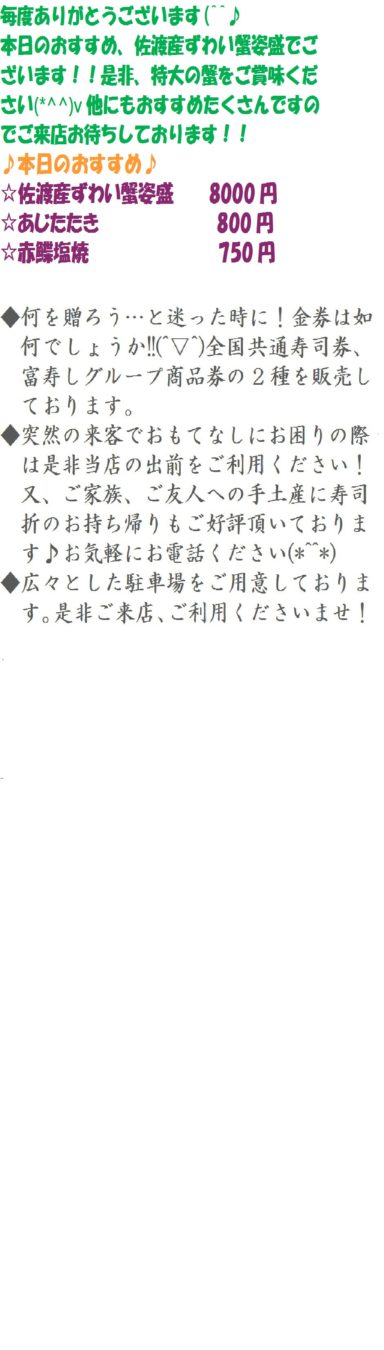 毎度ありがとうございます(^^♪
本日のおすすめ、佐渡産ずわい蟹姿盛でご
ざいます！！是非、特大の蟹をご賞味くだ
さい(*^^)v 他にもおすすめたくさんですの
でご来店お待ちしております！！
♪本日のおすすめ♪
☆佐渡産ずわい蟹姿盛　　8000 円
☆あじたたき　　800 円
☆赤鰈塩焼　　750 円
◆何を贈ろう…と迷った時に！金券は如
何でしょうか!!(^▽^)全国共通寿司券、
富寿しグループ商品券の２種を販売し
ております。
◆突然の来客でおもてなしにお困りの際
は是非当店の出前をご利用ください！
又、ご家族、ご友人への手土産に寿司
折のお持ち帰りもご好評頂いておりま
す♪お気軽にお電話ください(*^^*)
◆広々とした駐車場をご用意しておりま
す。是非ご来店、ご利用くださいませ！